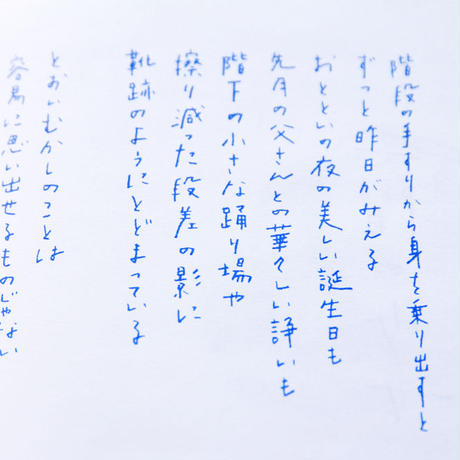 階段の手すりから身を乗り出すと
ずっと昨日がみえる
おとといの夜の美しい誕生日も
先月の父さんとの華々しい諍いも
階下の小さな踊り場や
擦り減った段差の影に
靴跡のようにとどまっている
とおいむかしのことは
容易に思い出せるものじゃない